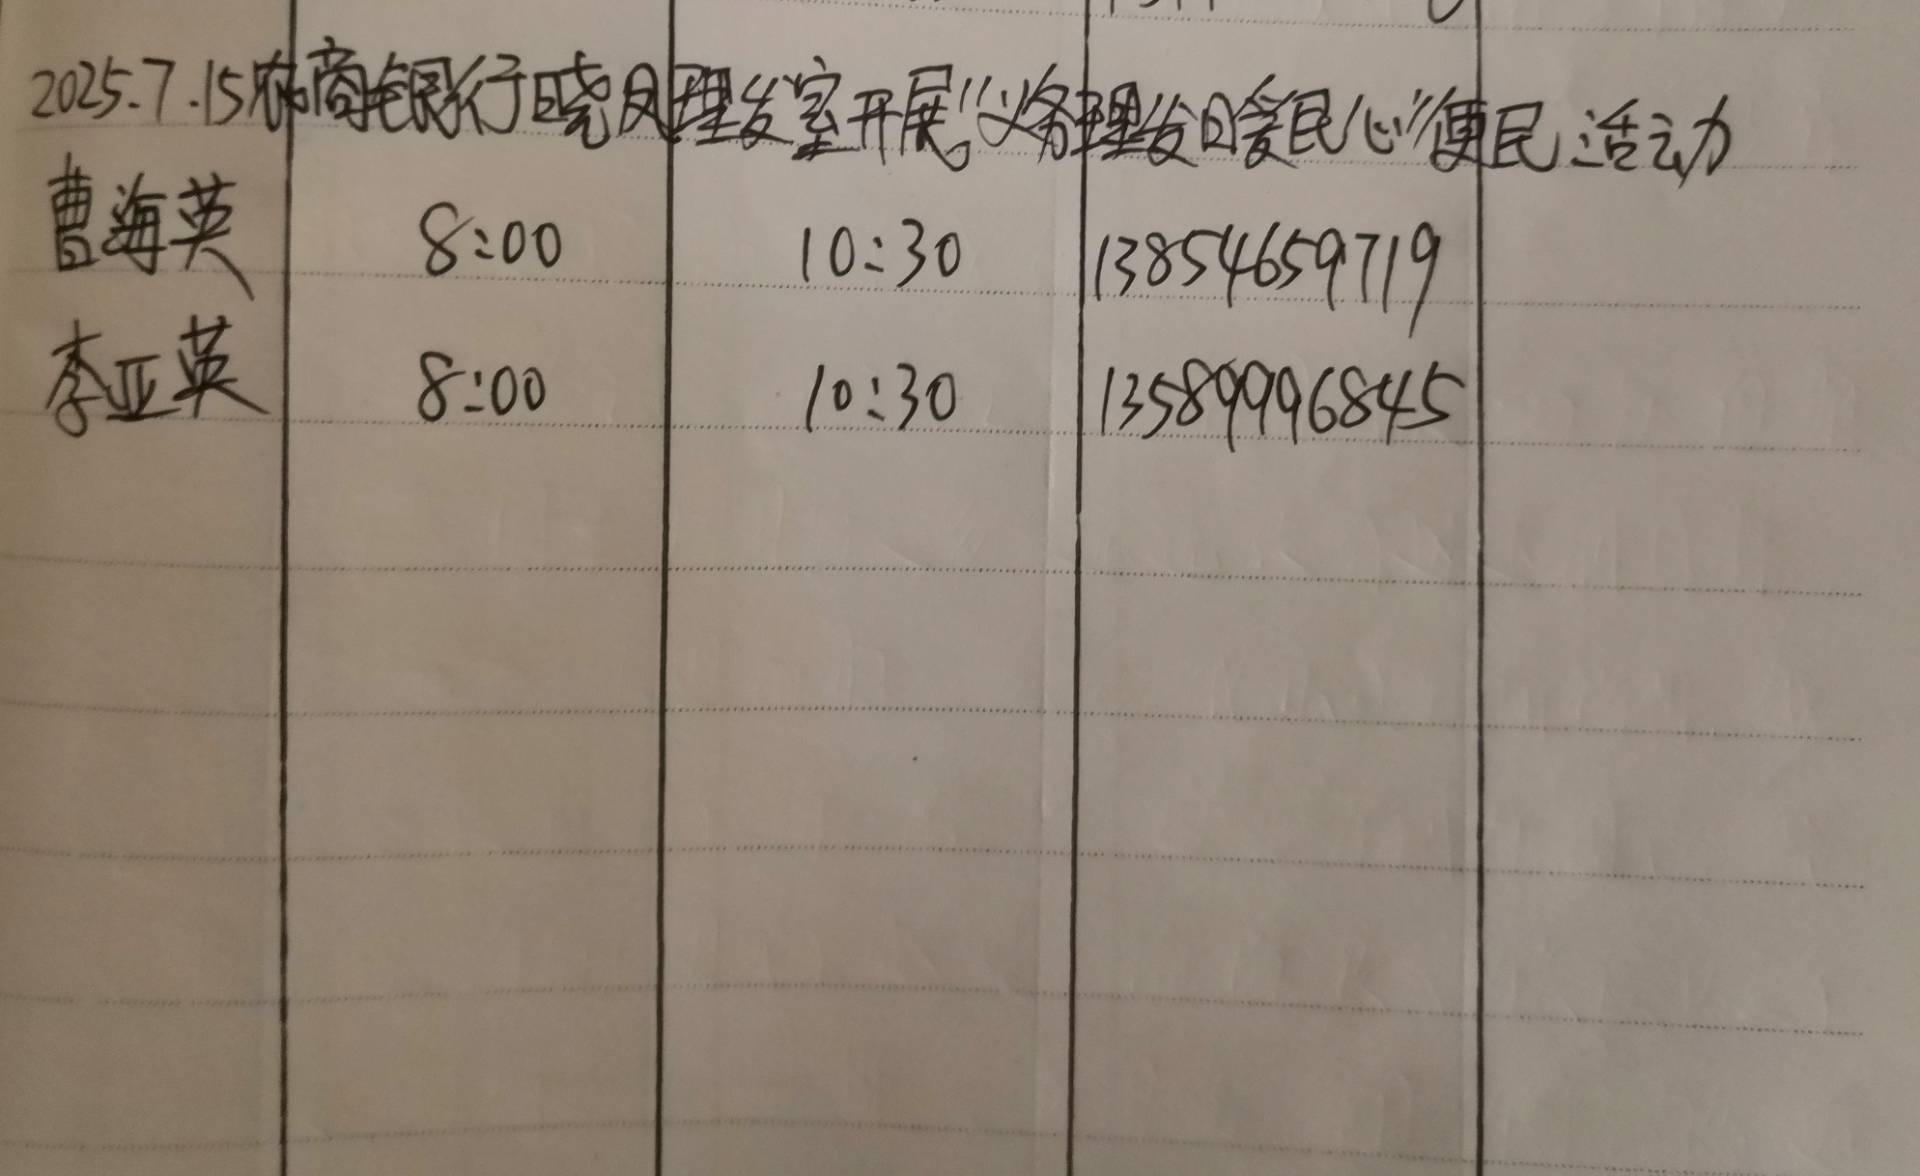 2025.7.15农商银行晓月理发室开展"义务理发日暖民心"便民活动
曹海英 8:00 10:30 13854659719
李亚英 8:00 10:30 13589996845